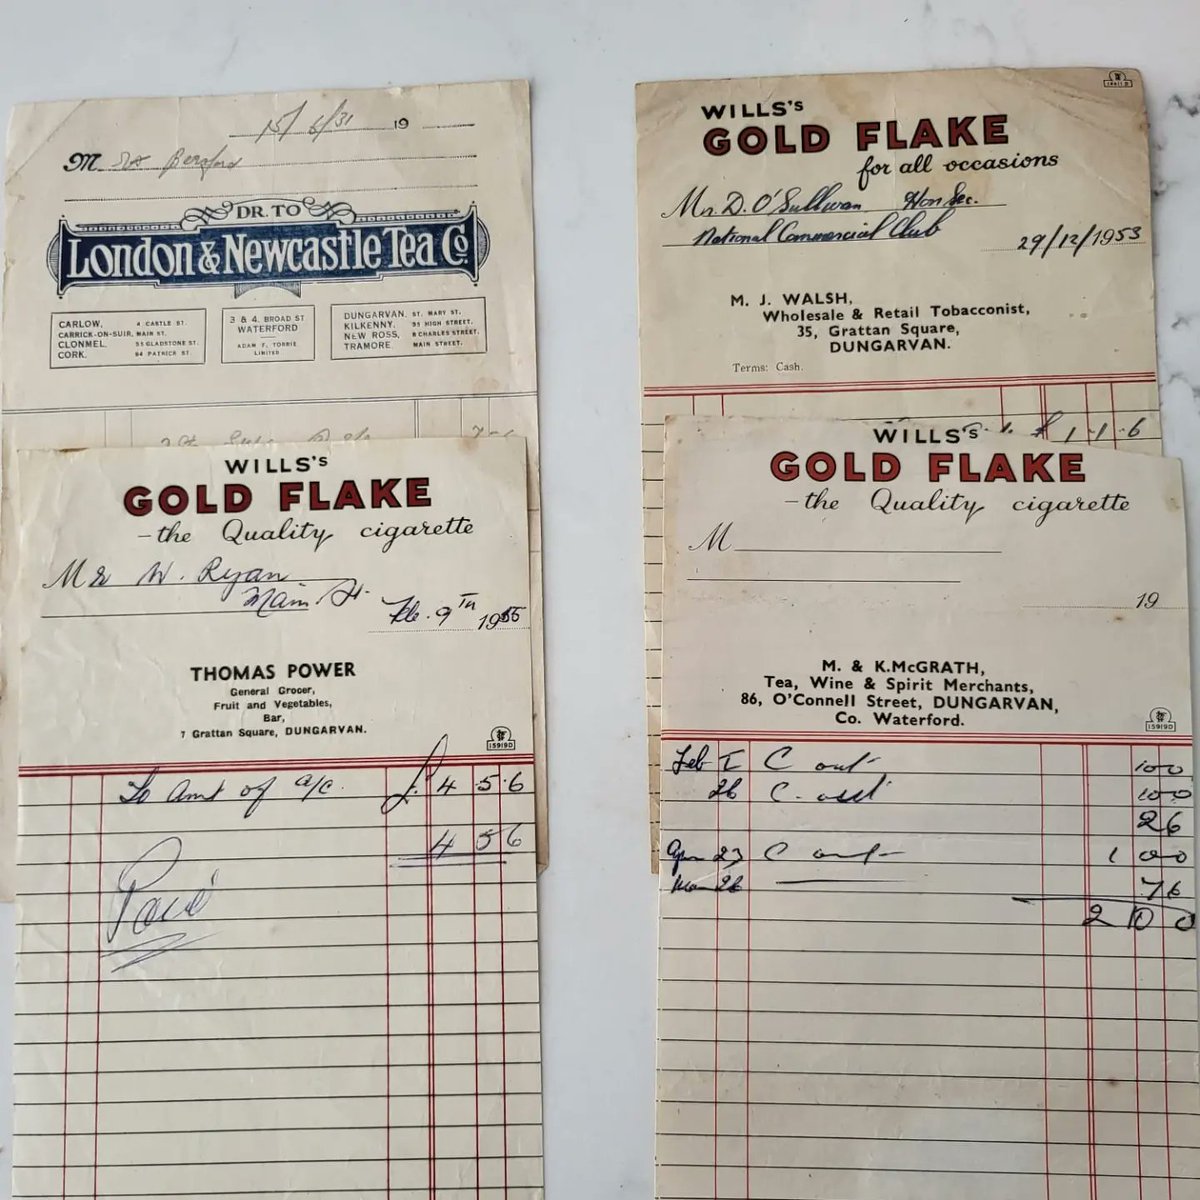 15/6/31 19
M
DR. TO
London & Newcastle Tea Co.
CARLOW, 4 CASTLE ST.
CARRICK-ON-SUIR, MAIN ST.
CLONMEL, 35 GLADSTONE ST.
CORK. 94 PATRICK ST.
3 & 4, BROAD ST
WATERFORD
ADAM F. TORRIE
LIMITED
DUNGARVAN, ST. MARY ST.
KILKENNY, 91 HIGH STREET,
NEW ROSS, 8 CHARLES STREET,
TRAMORE. MAIN STREET.
WILLS's
GOLD FLAKE
- the Quality cigarette
Mr W. Ryan
Main St.
Feb. 9TH 1955
THOMAS POWER
General Grocer,
Fruit and Vegetables,
Bar,
7 Grattan Square, DUNGARVAN.
15919D
To Amt of a/c. £ 4 . 5 . 6
4 5 6
Paid
WILLS's
GOLD FLAKE
for all occasions
Mr. D. O'Sullivan Hon Sec.
National Commercial Club
29/12/1953
M. J. WALSH,
Wholesale & Retail Tobacconist,
35, Grattan Square,
DUNGARVAN.
Terms: Cash.
£ 1 . 1 . 6
WILLS's
GOLD FLAKE
- the Quality cigarette
M
19
M. & K. McGRATH,
Tea, Wine & Spirit Merchants,
86, O'Connell Street, DUNGARVAN,
Co. Waterford.
15919D
Feb 1 C out 100
26 C. out 100
26
23 C out 1 0 0
26 76
2 10 0